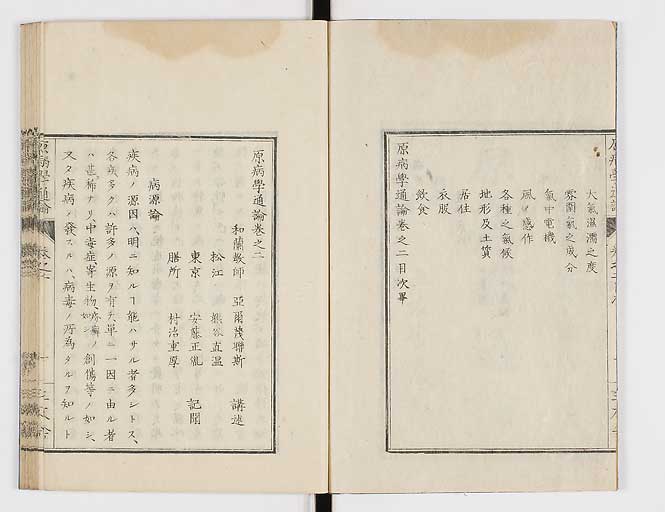 大氣濕濁之度
雰圍氣之成分
氣中電機
風ノ感作
各種之氣候
地形及土質
居住
衣服
飲食
原病學通論卷之二目次畢
原病學通論卷之二
和蘭敎師 亞爾蔑聯斯 講述
松江 熊谷直温
東京 安藤正胤 記聞
膳所 村治重厚
病源論
疾病ノ源因ハ、明ニ知ルヿ能ハサル者多シトス、
各疾多クハ許多ノ源ヲ有ス、單ニ一因ニ由ル者
ハ甚稀ナリ、中毒症寄生物、疥癬ノ如シ創傷等ノ如シ、
又タ疾病ノ發スルハ、病毒ノ所為タルヲ知ルト
原病學通論